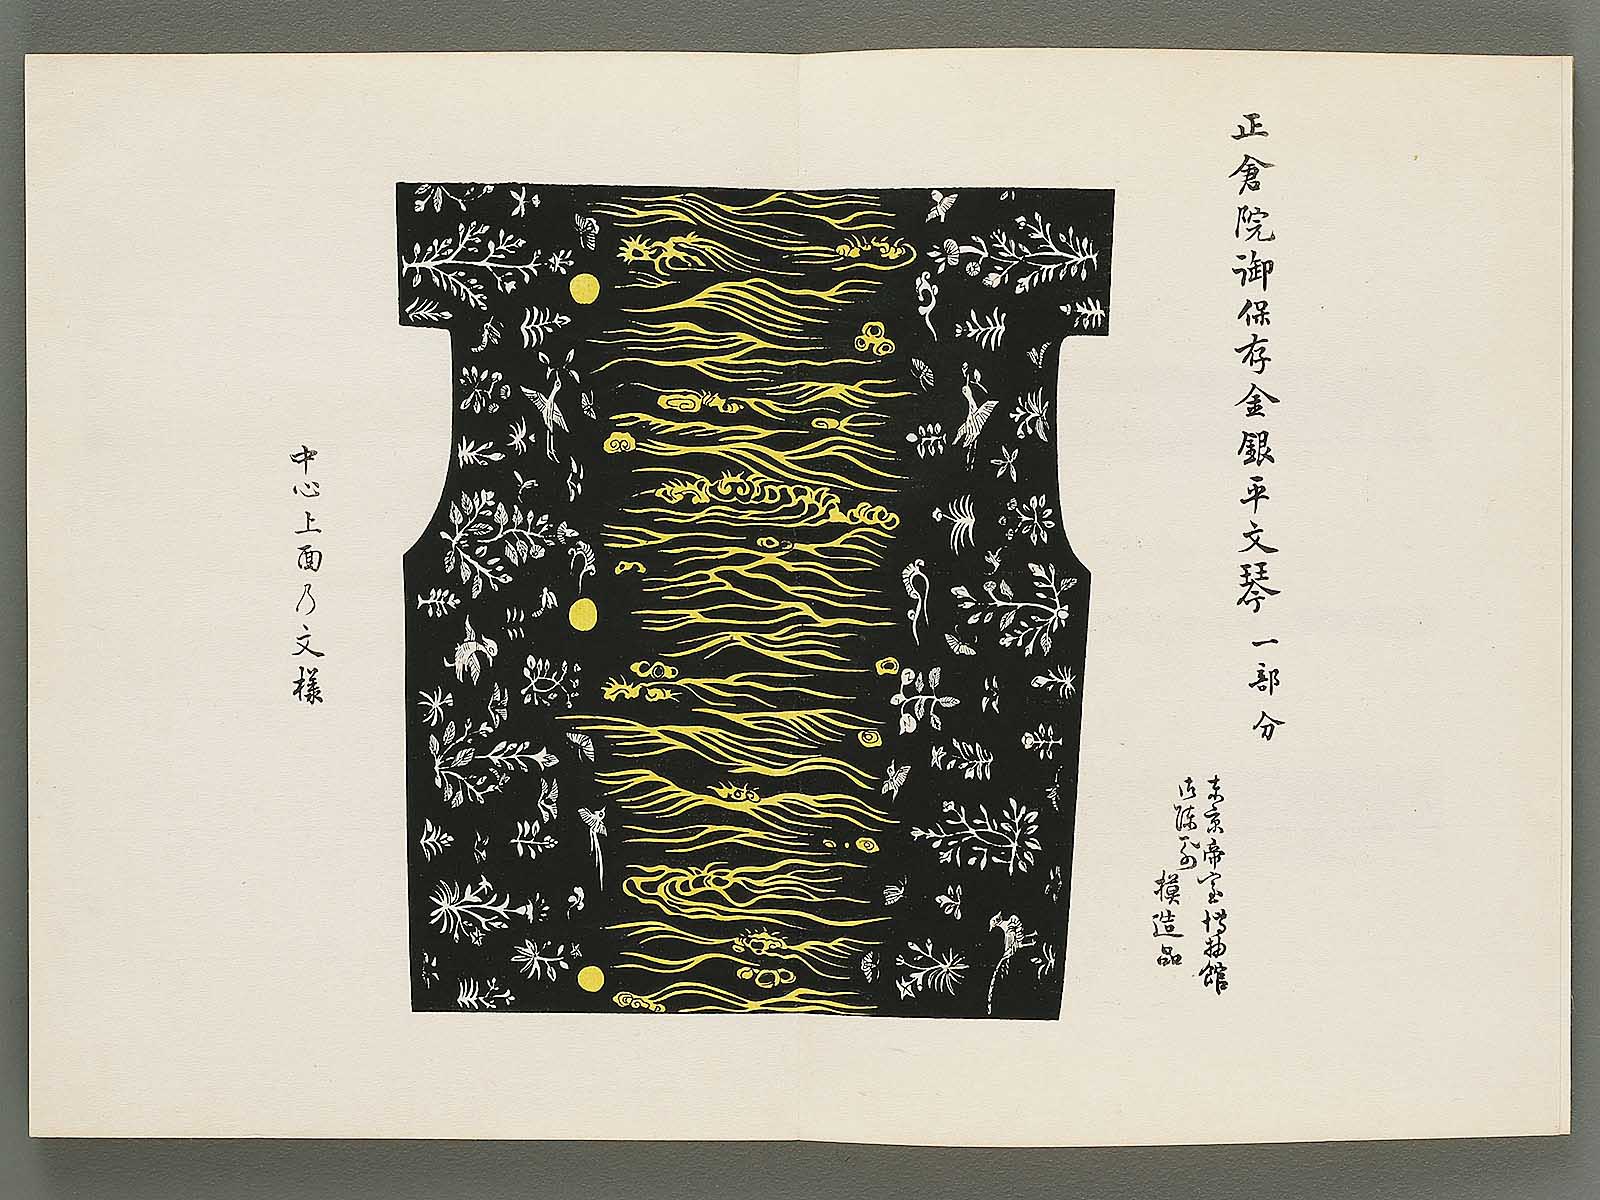 正倉院御保存金銀平文琴一部分
東京帝室博物館
御陳列
模造品
中心上面乃文様